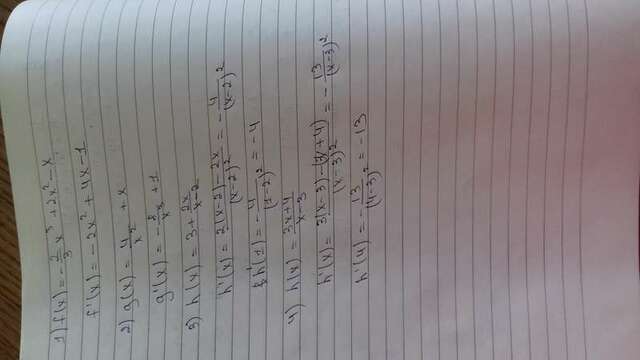 1) f(x) = -2/3 x³ + 2x² - x
f'(x) = -2x² + 4x - 1
2) g(x) = 4/x² + x
g'(x) = -8/x³ + 1
3) h(x) = 3 + 2x/(x-2)
h'(x) = (2(x-2) - 2x)/(x-2)² = -4/(x-2)²
h'(1) = -4/(1-2)² = -4
4) h(x) = (3x+4)/(x-3)
h'(x) = (3(x-3) - (3x+4))/(x-3)² = -13/(x-3)²
h'(4) = -13/(4-3)² = -13